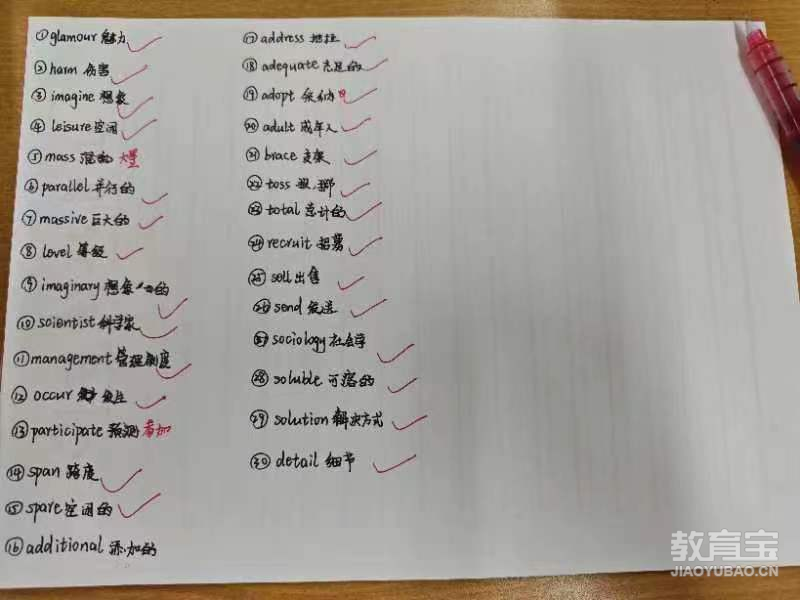 ① glamour 魅力
② harm 伤害
③ imagine 想象
④ leisure 空闲
⑤ mass 大量
⑥ parallel 并行的
⑦ massive 巨大的
⑧ level 等级
⑨ imaginary 想象 的
⑩ scientist 科学家
⑪ management 管理制度
⑫ occur 发生
⑬ participate 预测 参加
⑭ span 跨度
⑮ spare 空闲的
⑯ additional 添加的
⑰ address 地址
⑱ adequate 充足的
⑲ adopt
⑳ adult 成年人
㉑ brace 支架
㉒ toss 掷
㉓ total 总计的
㉔ recruit 招募
㉕ sell 出售
㉖ send 发送
㉗ sociology 社会学
㉘ soluble 可溶的
㉙ solution 解决方式
㉚ detail 细节
教育宝
JIAOYUBAO.CN